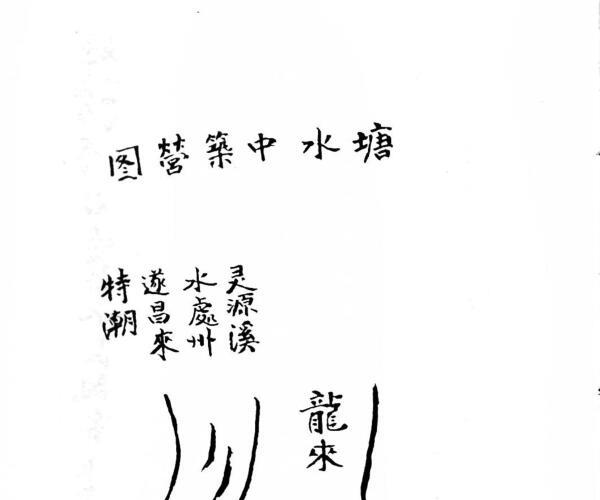 塘水中築營图
灵源溪
水處州
遂昌來
特潮
龍來